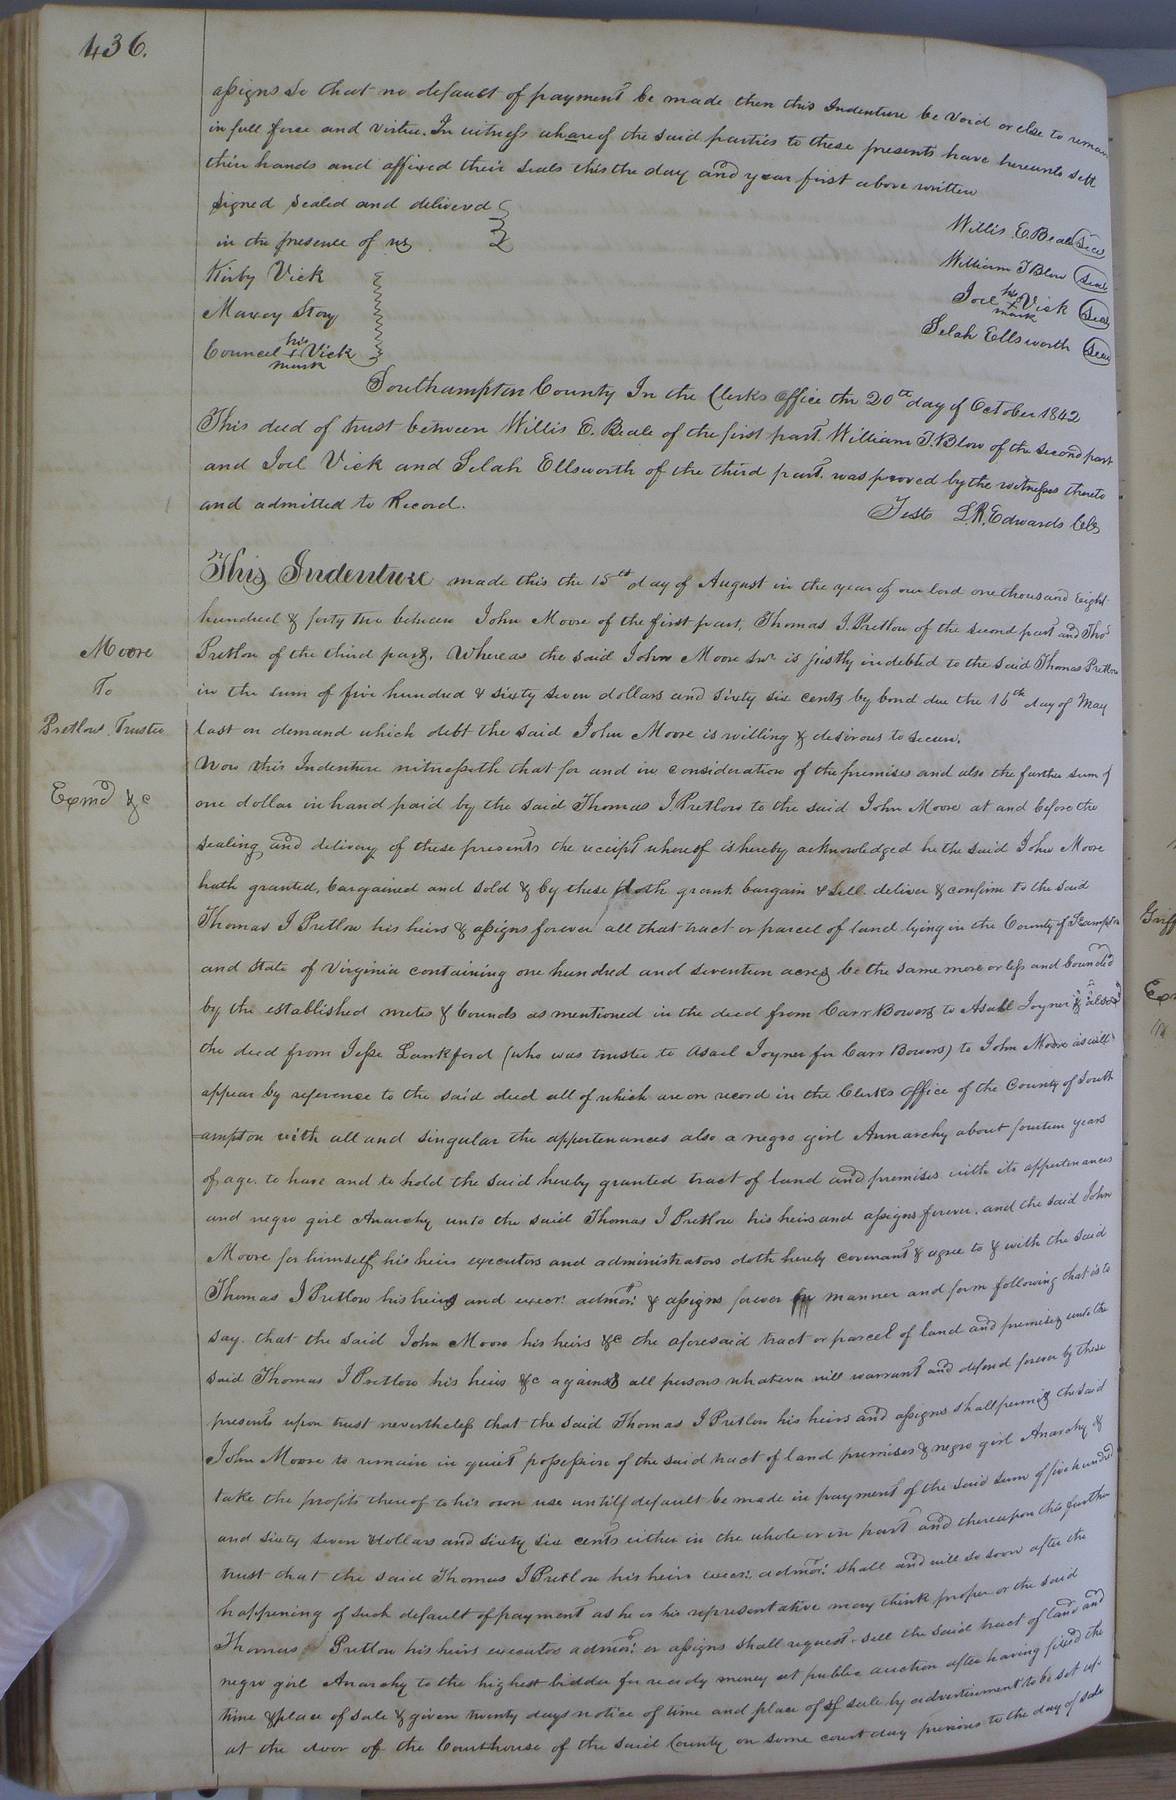 436.
assigns so that no default of payment be made then this Indenture be void or else to remain
in full force and virtue. In witness whareof the said parties to these presents have hereunto sett
their hands and affixed their seals this the day and year first above written
Signed Sealed and delivered
in the presence of us
Willis E. Beale Seal
Kirby Vick
William T Blow Seal
Maxey Story
Joel his + mark Vick Seal
Council his + mark Vick
Selah Ellsworth Seal
Southampton County In the Clerks Office the 20th day of October 1842
This deed of trust between Willis E. Beale of the first part. William T. Blow of the second part
and Joel Vick and Selah Ellsworth of the third part. was proved by the witnesses thereto
and admitted to Record.
Teste L.R. Edwards
This Indenture made this the 15th day of August in the year of our lord one thousand Eight
hundred & forty two between John Moore of the first part, Thomas J. Pretlow of the second part and Thos
Moore
Pretlow of the third part. Whereas the said John Moore Snr is justly indebted to the said Thomas Pretlow
To
in the sum of five hundred & sixty seven dollars and sixty six cents by bond due the 16th day of May
Pretlow Trustee
last on demand which debt the said John Moore is willing & desirous to secure.
Now this Indenture witnesseth that for and in consideration of the premises and also the further sum of
Exmd &c
one dollar in hand paid by the said Thomas J Pretlow to the said John Moore at and before the
sealing and delivery of these presents the receipt whereof is hereby acknowledged he the said John Moore
hath granted, bargained and sold & by these doth grant. bargain & sell. deliver & confirm to the said
Thomas J Pretlow his heirs & assigns forever all that tract or parcel of land lying in the County of S.hampton
and State of Virginia containing one hundred and seventeen acres be the same more or less and bounded
by the established metes & bounds as mentioned in the deed from Carr Bowers to Asahl Joyner & also
the deed from Jesse Lankford (who was trustee to Asael Joyner for Carr Bowers) to John Moore as will
appear by reference to the said deed all of which are on record in the Clerks Office of the County of South
=ampton with all and singular the appertenances also a negro girl Annarchy about fourteen years
of age. to have and to hold the said hereby granted tract of land and premises with its appertenances
and negro girl Anarchy unto the said Thomas J Pretlow his heirs and assigns forever. and the said John
Moore for himself his heirs executors and administrators doth hereby covenant & agree to & with the said
Thomas J Pretlow his heirs and execr. admor. & assigns forever in manner and form following that is to
say. that the said John Moore his heirs &c the aforesaid tract or parcel of land and premises unto the
said Thomas J Pretlow his heirs &c against all persons whatever will warrant and defend forever by these
presents upon trust nevertheless that the said Thomas J Pretlow his heirs and assigns shall permit the said
John Moore to remain in quiet possession of the said tract of land premises & negro girl Anarchy &
take the profits thereof to his own use untill default be made in payment of the said sum of five hundred
and sixty seven dollars and sixty six cents either in the whole or in part and thereupon this further
trust that the said Thomas J Pretlow his heirs execr. admor. shall and will so soon after the
happening of such default of payment as he or his representative may think proper or the said
Thomas Pretlow his heirs executor admor. or assigns shall request. sell the said tract of land and
negro girl Anarchy to the highest bidder for ready money at public auction after having fixed the
time & place of sale & given twenty days notice of time and place of of sale by advertisement to be set up
at the door of the Courthouse of the said County on some court day previous to the day of sale
Griff